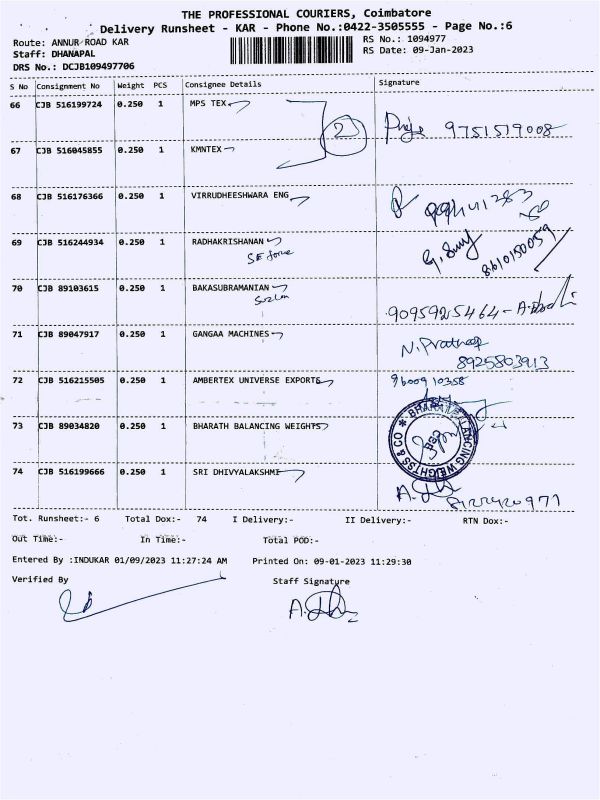 THE PROFESSIONAL COURIERS, Coimbatore
Delivery Runsheet - KAR - Phone No.:0422-3505555 - Page No.:6
Route: ANNUR ROAD KAR
RS No.: 1094977
Staff: DHANAPAL
RS Date: 09-Jan-2023
DRS No.: DCJB109497706
S No Consignment No Weight PCS Consignee Details Signature
66 CJB 516199724 0.250 1 MPS TEX
2 9751519008
67 CJB 516045855 0.250 1 KMNTEX
68 CJB 516176366 0.250 1 VIRRUDHEESHWARA ENG
69 CJB 516244934 0.250 1 RADHAKRISHANAN
8610150059
70 CJB 89103615 0.250 1 BAKASUBRAMANIAN
9095925464
71 CJB 89047917 0.250 1 GANGAA MACHINES
N. Prathap
8925803913
72 CJB 516215505 0.250 1 AMBERTEX UNIVERSE EXPORTS
9600910358
73 CJB 89034820 0.250 1 BHARATH BALANCING WEIGHTS
74 CJB 516199666 0.250 1 SRI DHIVYALAKSHMI
Tot. Runsheet:- 6 Total Dox:- 74 I Delivery:- II Delivery:- RTN Dox:-
Out Time:- In Time:- Total POD:-
Entered By :INDUKAR 01/09/2023 11:27:24 AM Printed On: 09-01-2023 11:29:30
Verified By Staff Signature